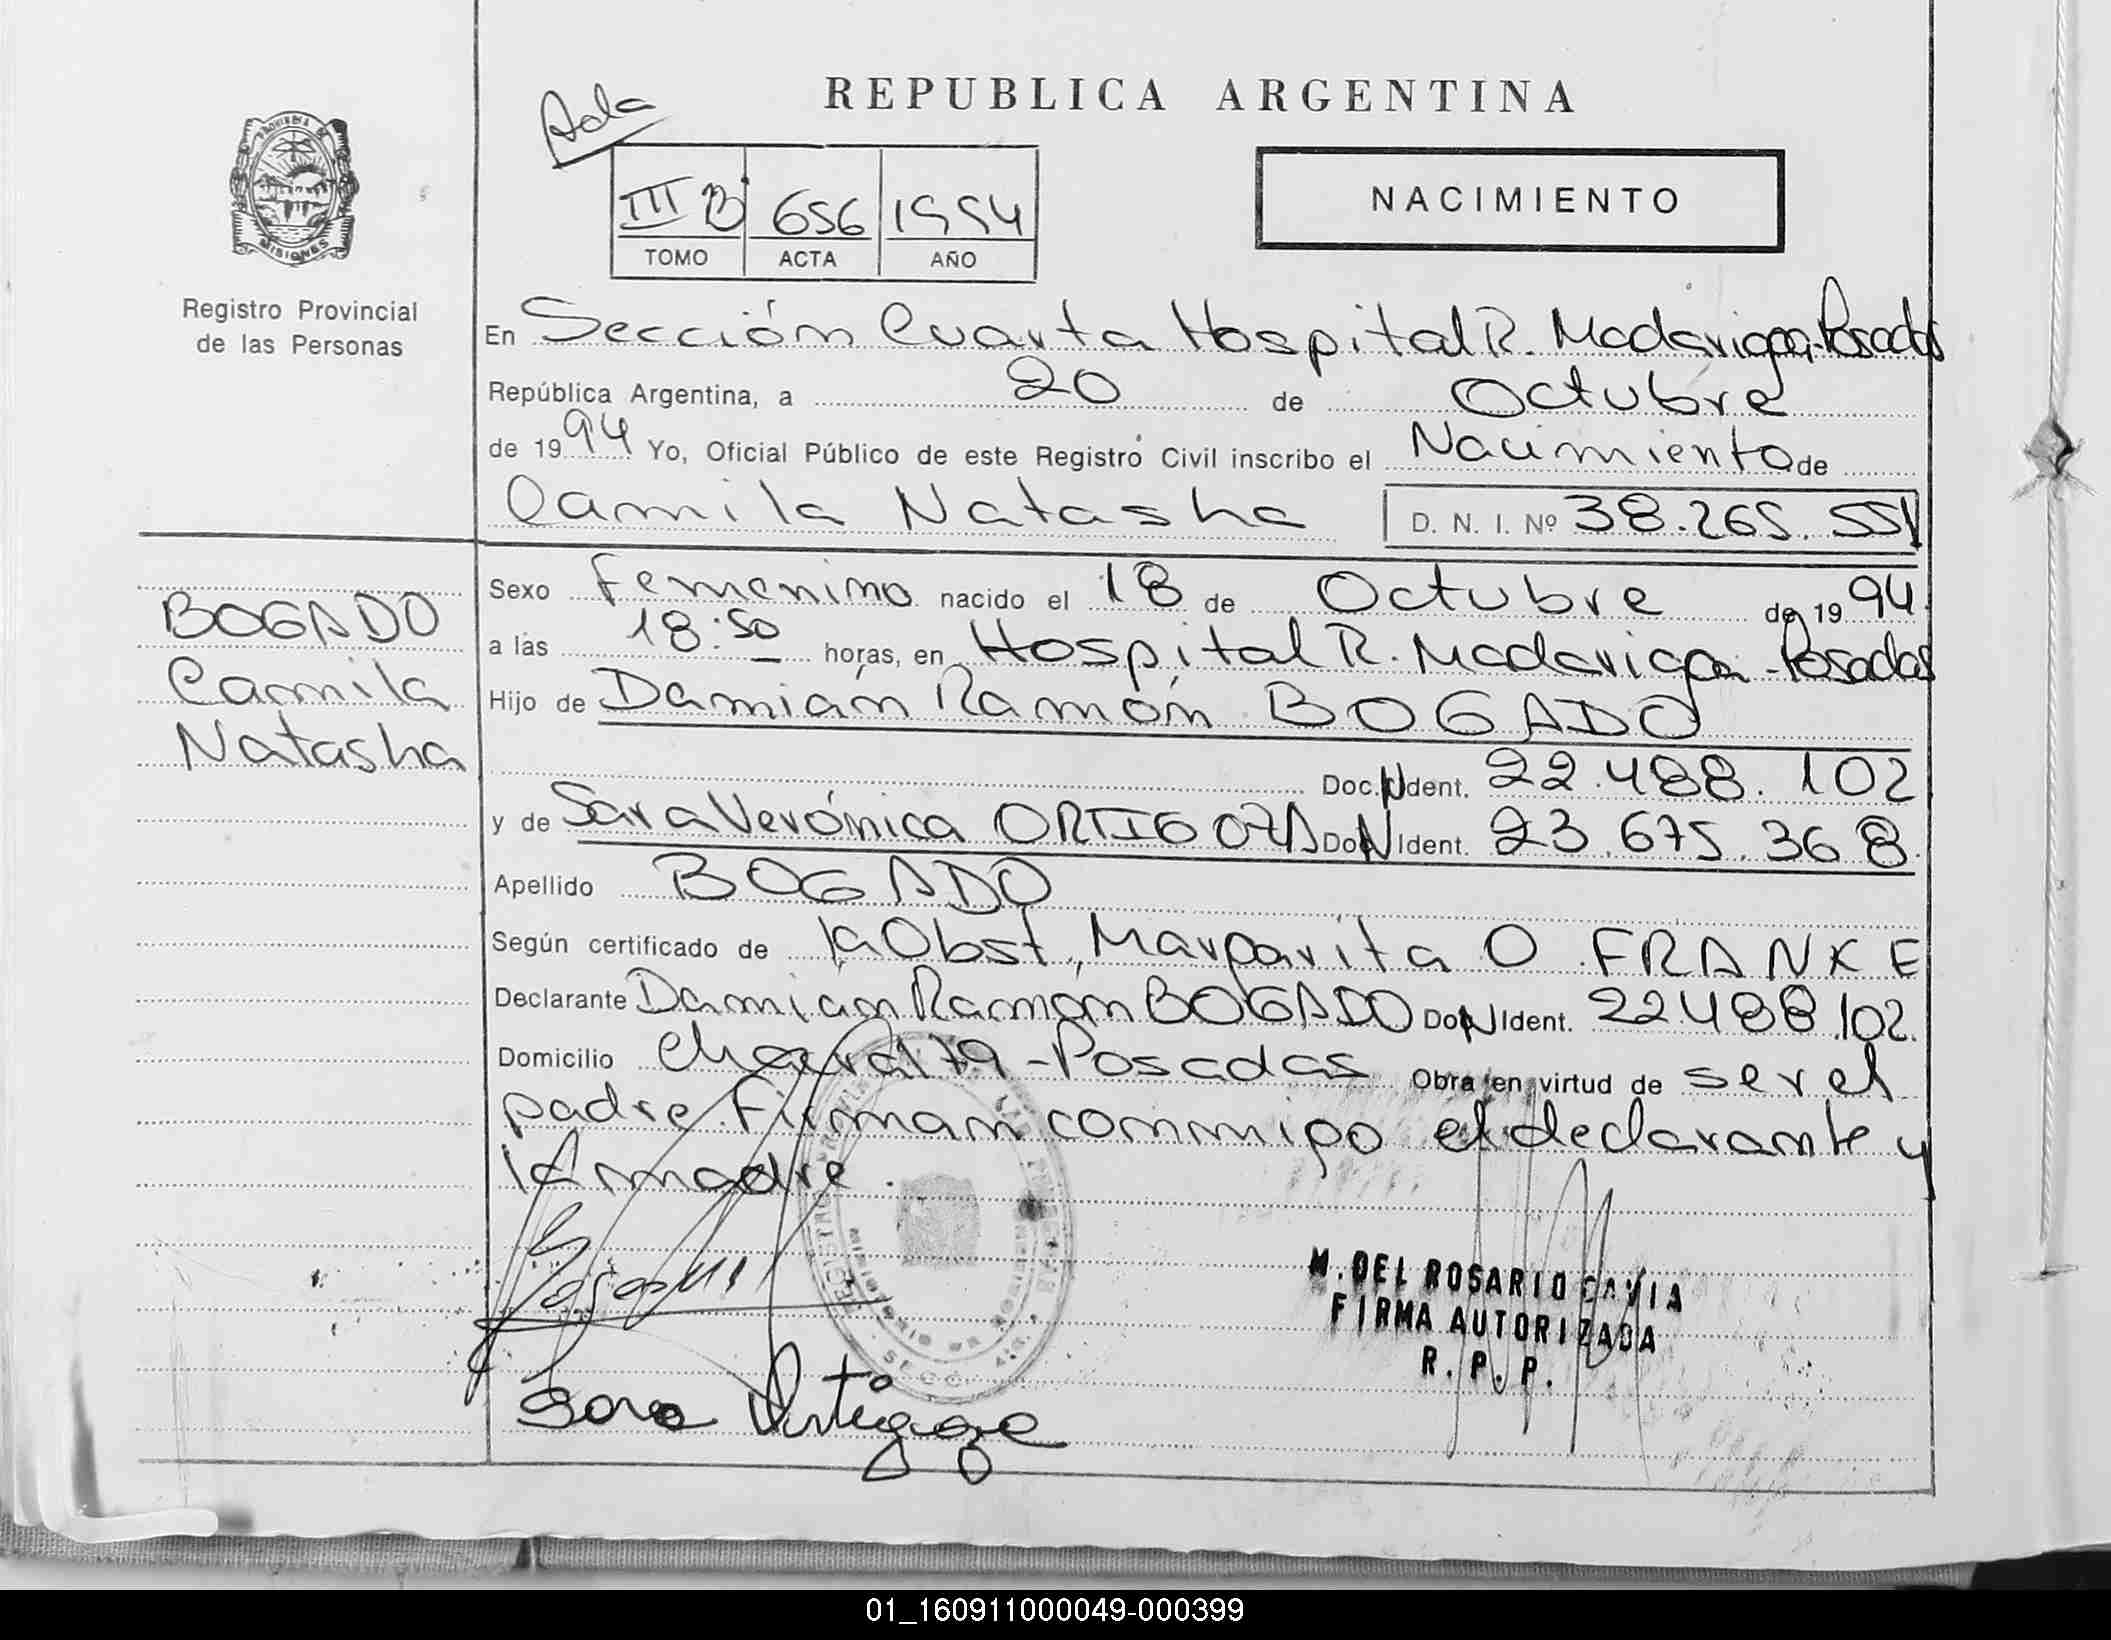 REPUBLICA ARGENTINA
Ada
III B 656 1994
TOMO ACTA AÑO
NACIMIENTO
PROVINCIA DE
MISIONES
Registro Provincial
de las Personas
En Sección Cuarta Hospital R. Madariaga-Posadas
República Argentina, a 20 de Octubre
de 1994 Yo, Oficial Público de este Registro Civil inscribo el Nacimiento de
Camila Natasha D. N. I. Nº 38.265.551
BOGADO
Camila
Natasha
Sexo Femenino nacido el 18 de Octubre de 1994
a las 18:50 horas, en Hospital R. Madariaga-Posadas
Hijo de Damián Ramón BOGADO
Doc. N Ident. 22.488.102
y de Sara Verónica ORTIGOZA Doc N Ident. 23.675.368
Apellido BOGADO
Según certificado de la Obst. Margarita O FRANKE
Declarante Damián Ramón BOGADO Doc N Ident. 22488.102.
Domicilio 179-Posadas Obra en virtud de ser el
padre. Firman conmigo el declarante y
la madre.
M. DEL ROSARIO GAVIA
FIRMA AUTORIZADA
R. P. P.
Sara Ortigoza
01_160911000049-000399